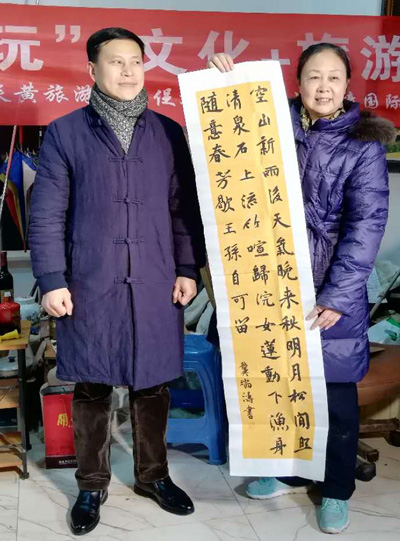 玩”文化+旅游
黄旅游
促
国际
空山新雨後天氣晚来秋明月松间照
清泉石上流竹喧歸浣女蓮動下漁舟
随意春芳歇王孫自可留
書